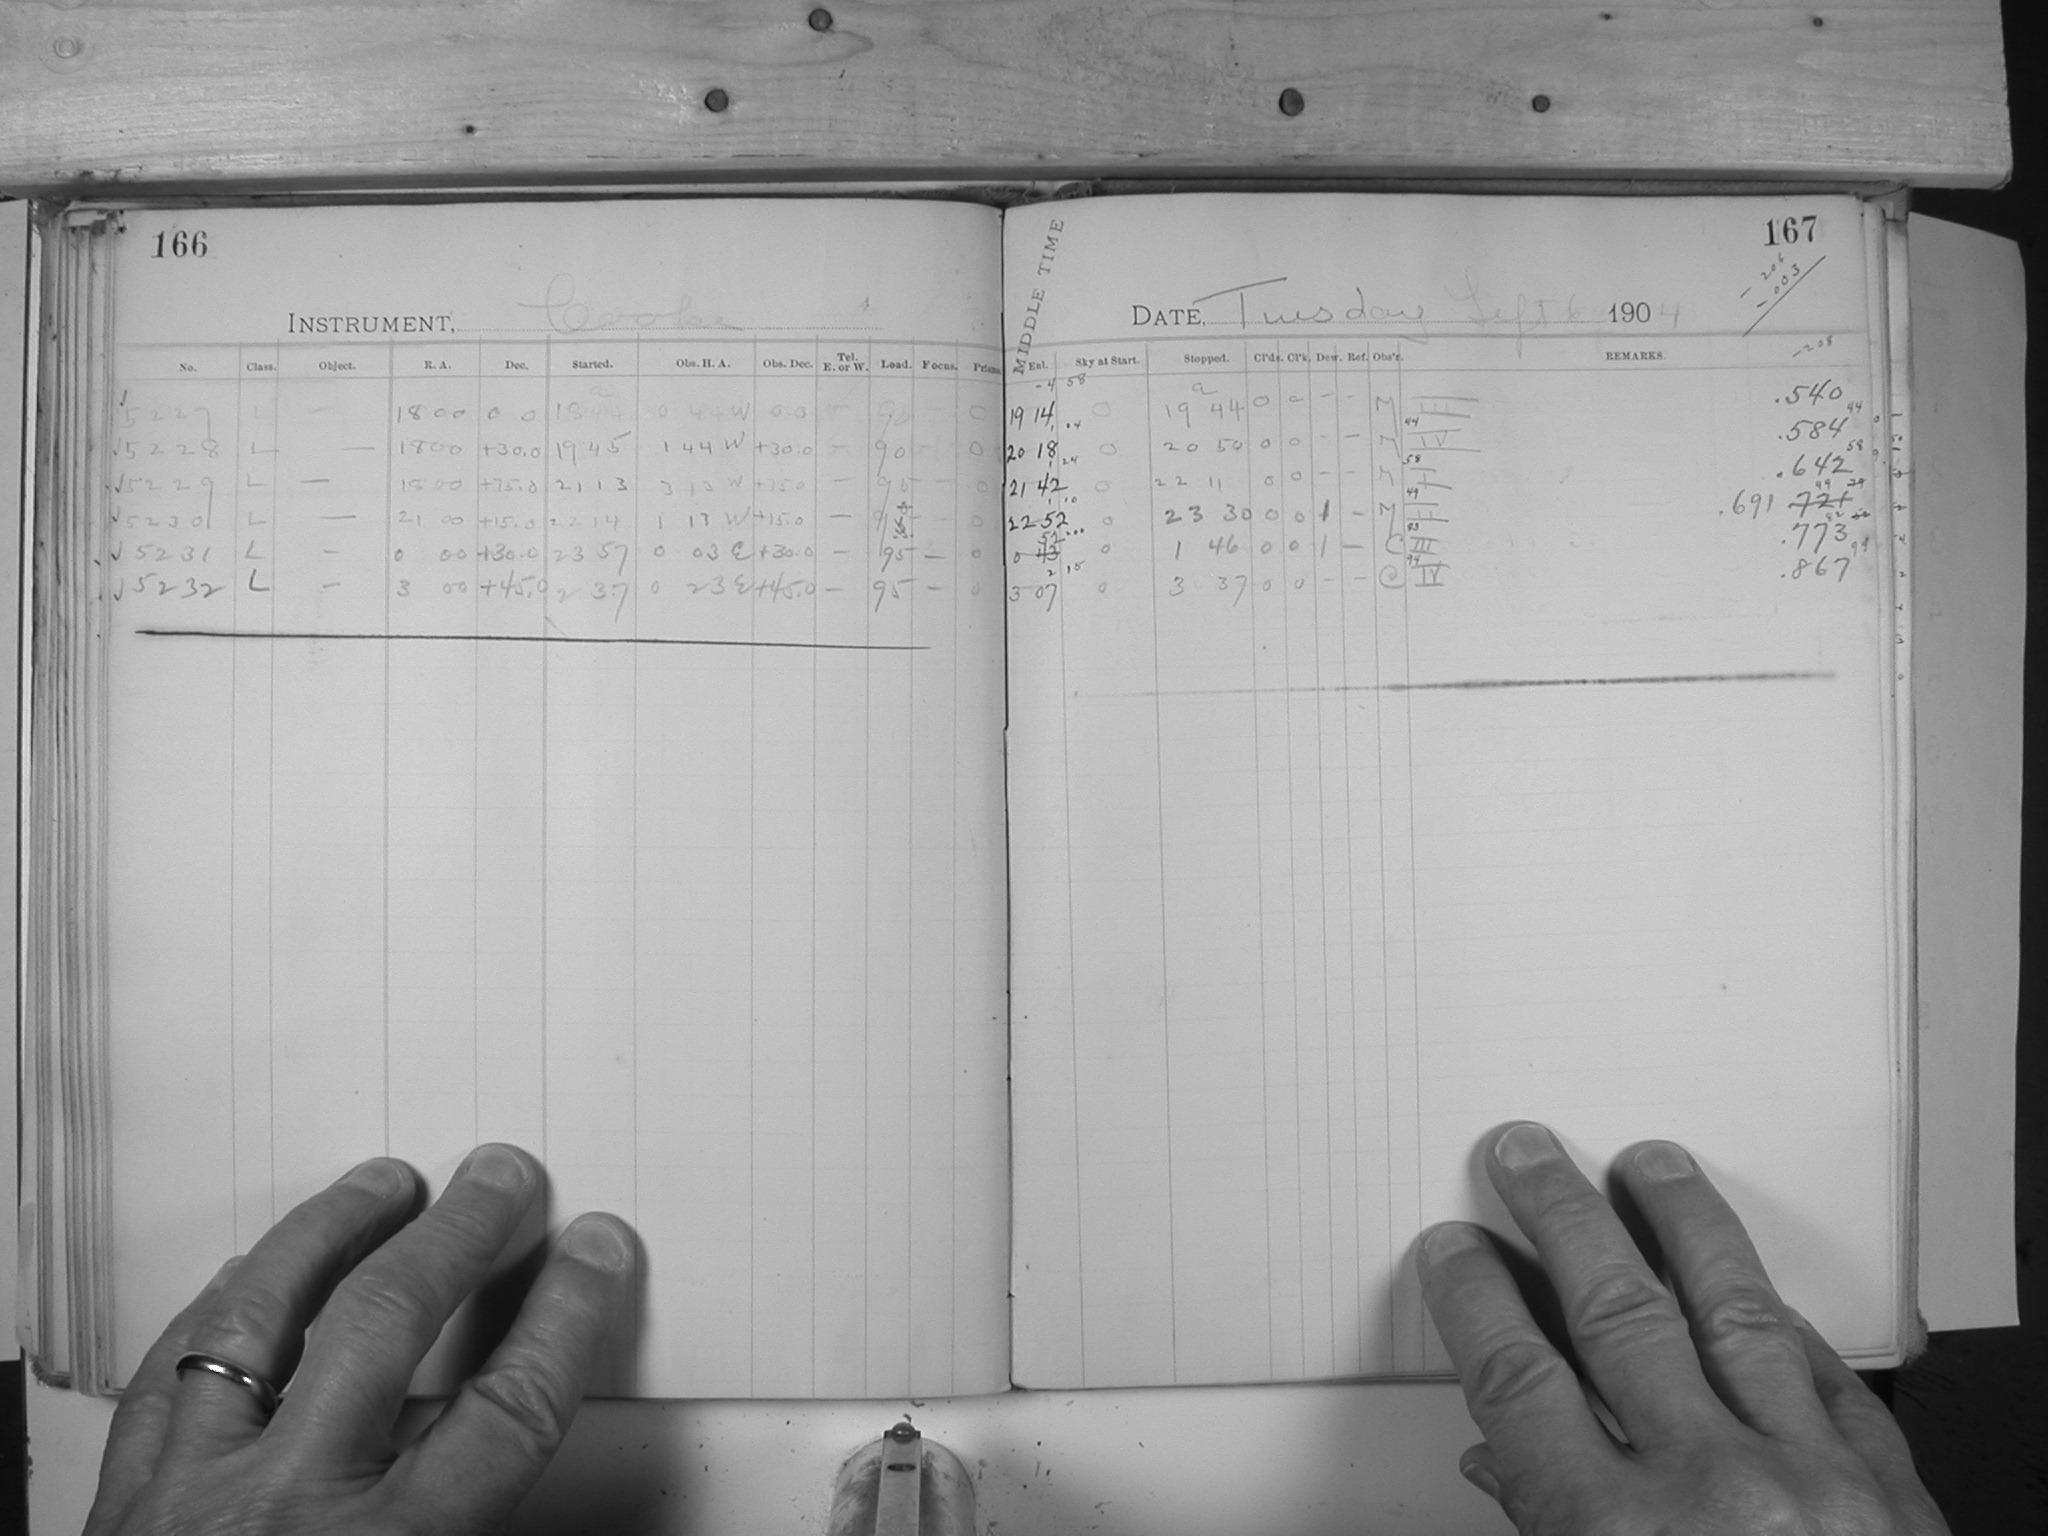 166
INSTRUMENT, Cooke
No. Class. Object. R. A. Dec. Started. Obs. H. A. Obs. Dec. Tel. E. or W. Load. Focus. Prisms
5227 L — 18 00 0 0 18 44 0 44 W 0.0 — 90 — 0
√5228 L — 18 00 +30.0 19 45 1 44 W +30.0 — 90 — 0
√5229 L — 18 00 +75.0 21 13 3 13 W +75.0 — 95 — 0
√5230 L — 21 00 +15.0 22 14 1 13 W +15.0 — — 0
√5231 L — 0 00 +30.0 23 57 0 03 E +30.0 — 95 — 0
√5232 L — 3 00 +45.0 2 37 0 23 E +45.0 — 95 — 0
167
MIDDLE TIME
DATE, Tuesday Sept 6 1904
-206
-003
-208
Enl. Sky at Start. Stopped. Cl'ds. Cl'k. Dew. Ref. Obs'r. REMARKS.
-4 58
19 14 0 19 44 0 0 - - M III .540
20 18 0 20 50 0 0 - - M IV .584
21 42 0 22 11 0 0 - - M I .642
22 52 0 23 30 0 0 1 - M II .691 721
0 43 52 0 1 46 0 0 1 — C III .773
3 07 0 3 37 0 0 - - C IV .867